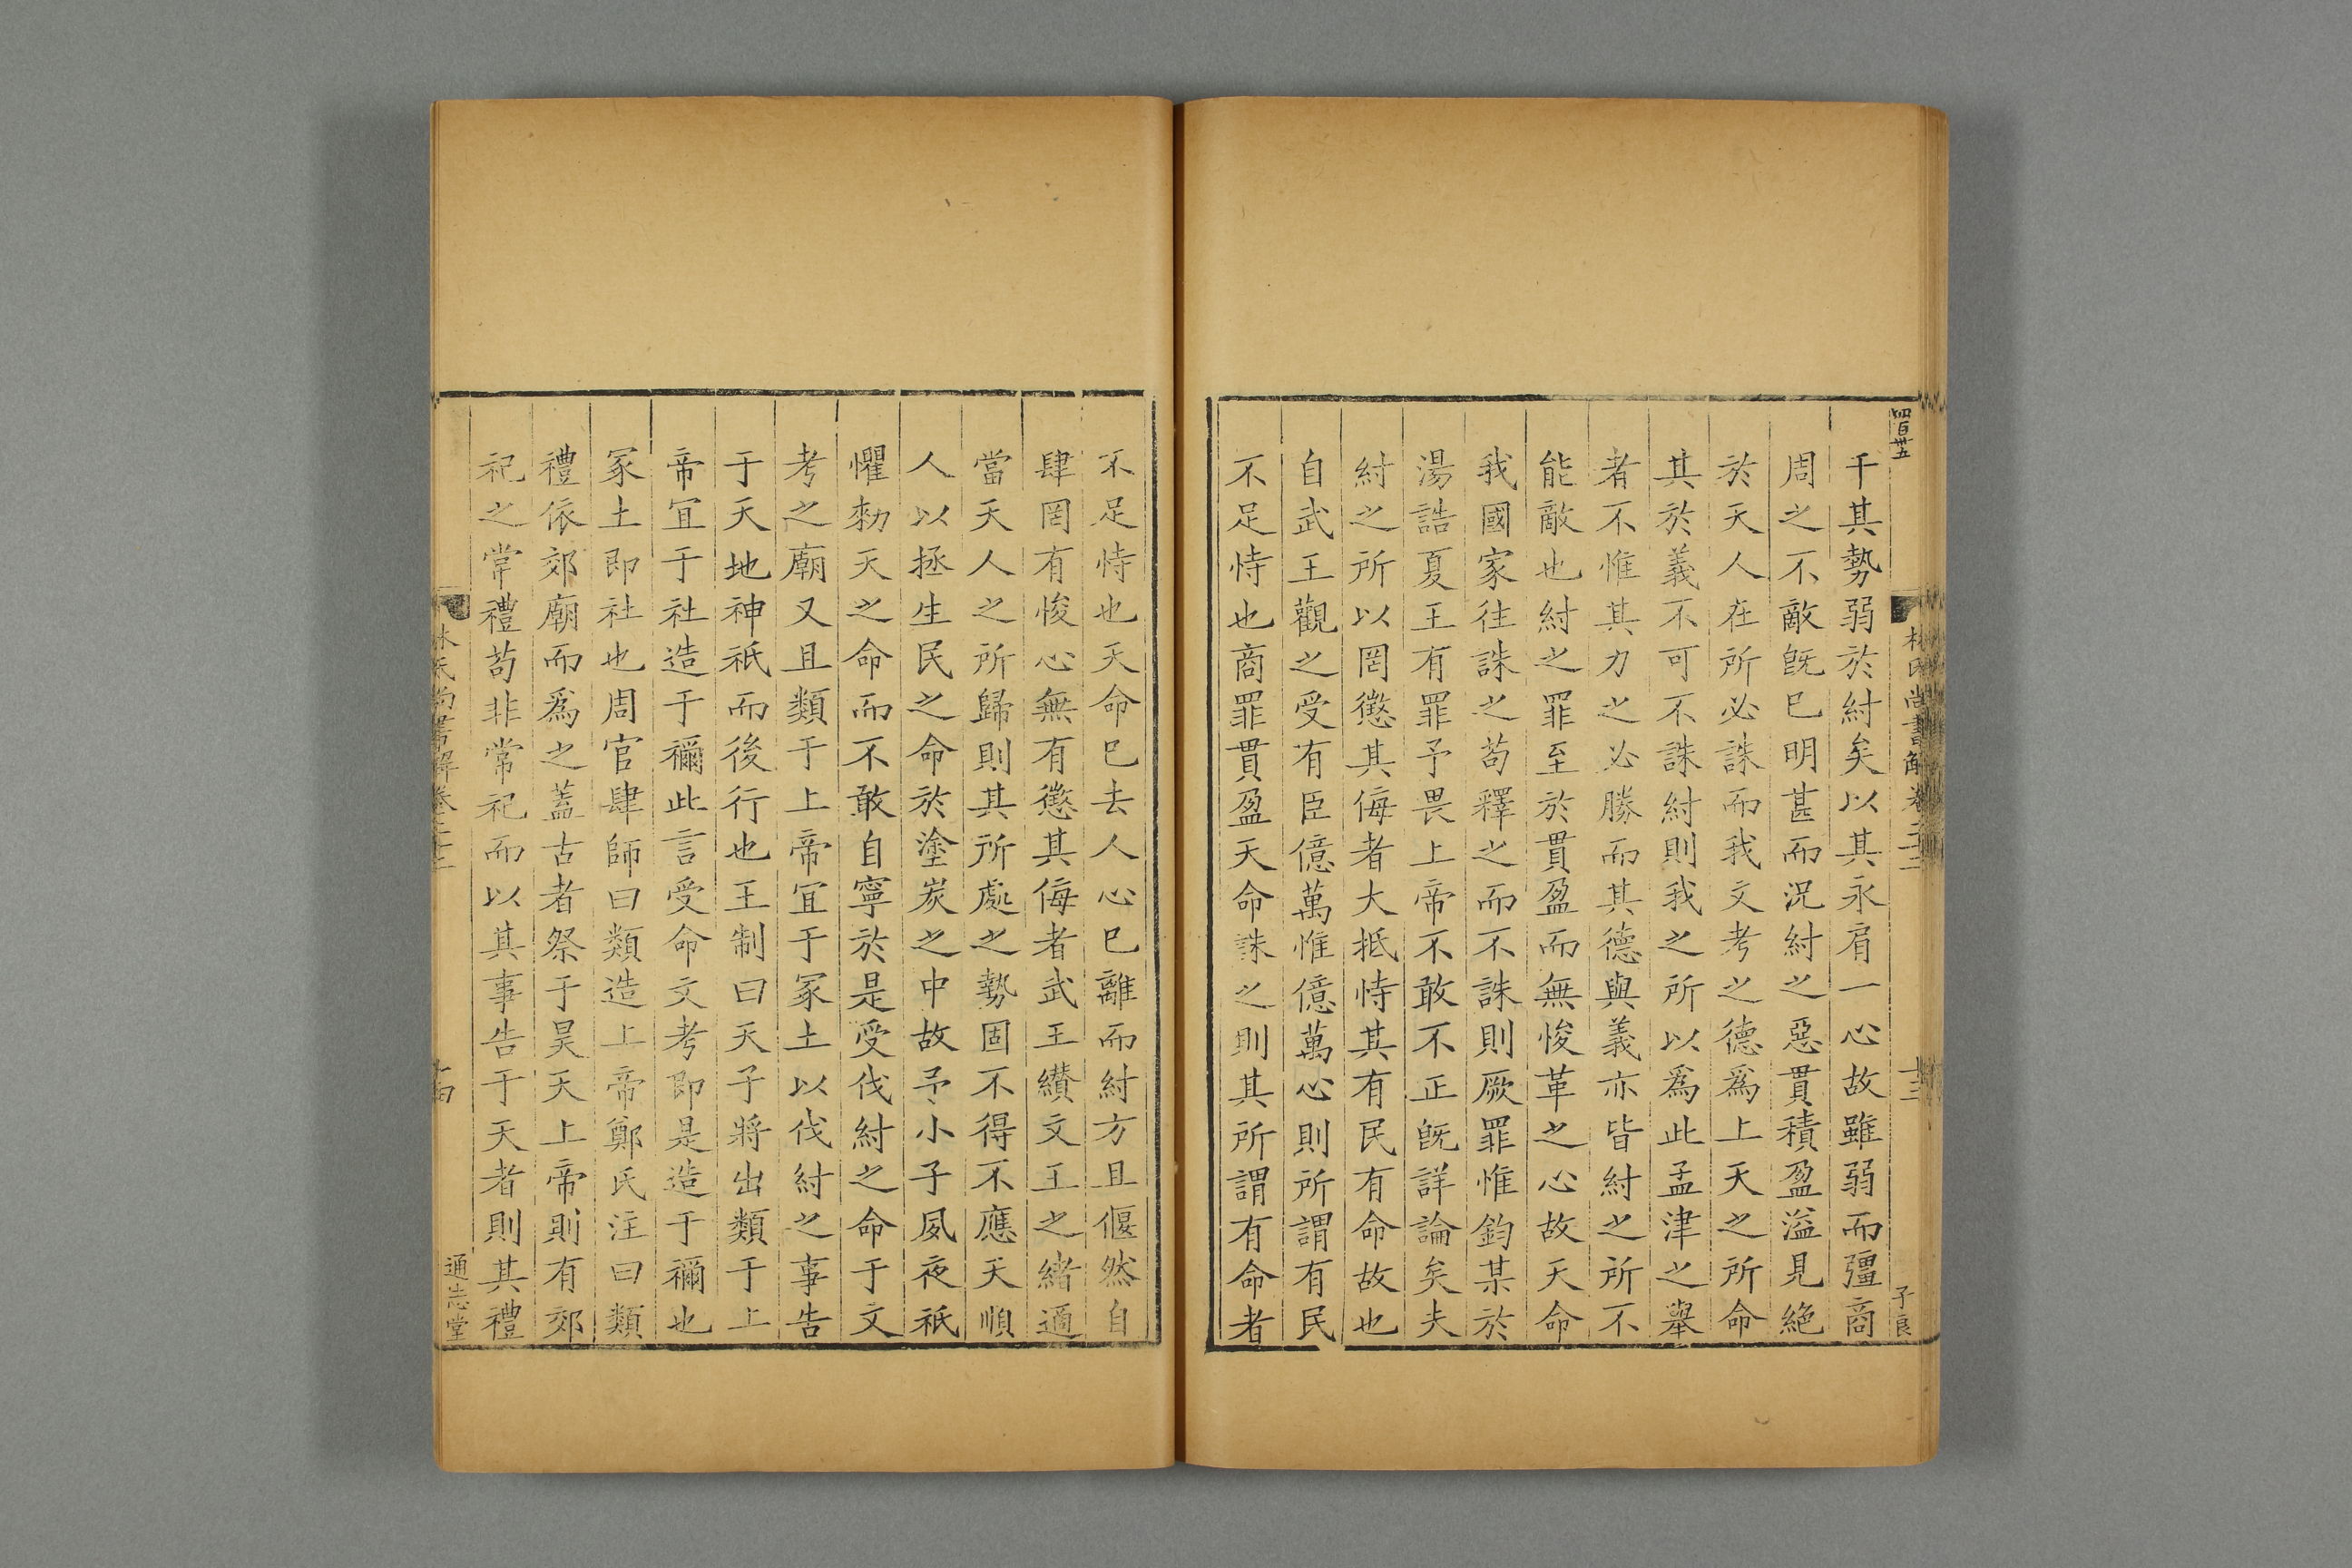 四百卅五
林氏尚書解卷二十二
十三
子良
千其勢弱於紂矣以其永肩一心故雖弱而彊商
周之不敵旣已明甚而況紂之惡貫積盈溢見絕
於天人在所必誅而我文考之德爲上天之所命
其於義不可不誅紂則我之所以爲此孟津之舉
者不惟其力之必勝而其德與義亦皆紂之所不
能敵也紂之罪至於貫盈而無悛革之心故天命
我國家往誅之茍釋之而不誅則厥罪惟鈞某於
湯誥夏王有罪予畏上帝不敢不正旣詳論矣夫
紂之所以罔懲其侮者大抵恃其有民有命故也
自武王觀之受有臣億萬惟億萬心則所謂有民
不足恃也商罪貫盈天命誅之則其所謂有命者
不足恃也天命已去人心已離而紂方且偃然自
肆罔有悛心無有懲其侮者武王纘文王之緒適
當天人之所歸則其所處之勢固不得不應天順
人以拯生民之命於塗炭之中故予小子夙夜祇
懼勑天之命而不敢自寧於是受伐紂之命于文
考之廟又且類于上帝宜于冢土以伐紂之事告
于天地神祇而後行也王制曰天子將出類于上
帝宜于社造于禰此言受命文考即是造于禰也
冢土即社也周官肆師曰類造上帝鄭氏注曰類
禮依郊廟而爲之蓋古者祭于昊天上帝則有郊
祀之常禮茍非常祀而以其事告于天者則其禮
林氏尚書解卷二十二
十四
通志堂